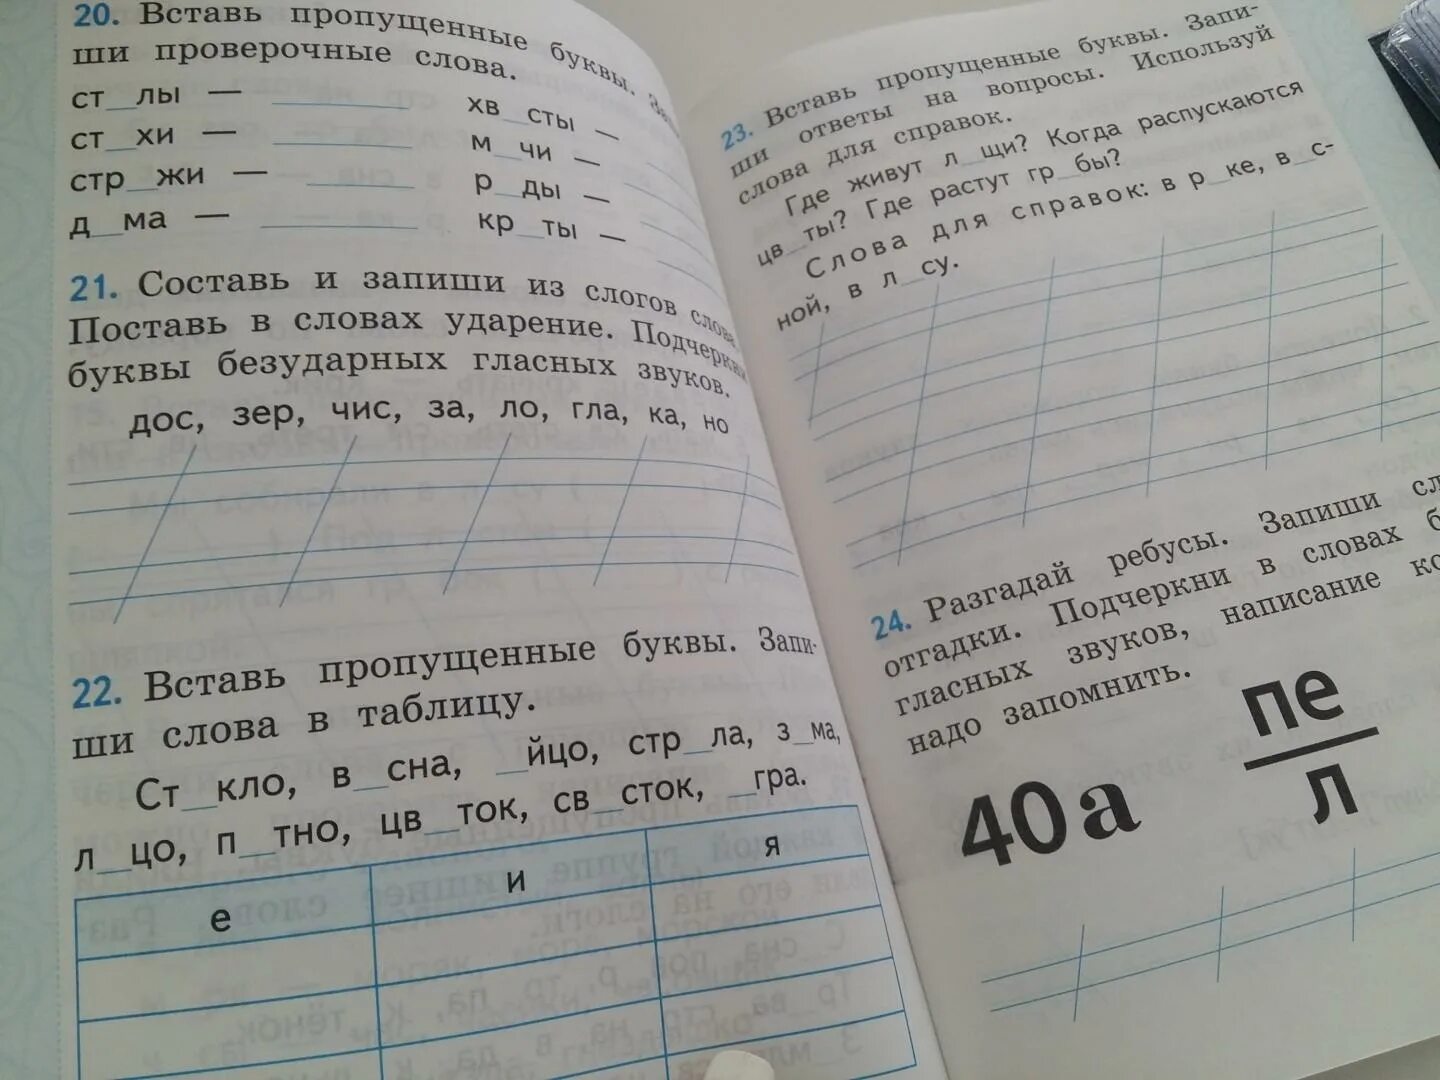 20. Вставь пропущенные буквы.
ши проверочные слова.
ст__лы — хв__сты —
ст__хи — м__чи —
стр__жи — р__ды —
д__ма — кр__ты —
21. Составь и запиши из слогов
Поставь в словах ударение. Подчеркни
буквы безударных гласных звуков.
дос, зер, чис, за, ло, гла, ка, но
22. Вставь пропущенные буквы. Запи-
ши слова в таблицу.
Ст__кло, в__сна, __йцо, стр__ла, з__ма,
л__цо, п__тно, цв__ток, св__сток, __гра.
е и я
23. Вставь пропущенные буквы. Запи-
ши ответы на вопросы. Используй
слова для справок.
Где живут л__щи? Когда распускаются
цв__ты? Где растут гр__бы?
Слова для справок: в р__ке, в__с-
ной, в л__су.
24. Разгадай ребусы. Запиши
отгадки. Подчеркни в словах
гласных звуков, написание
надо запомнить.
40а
пе
л